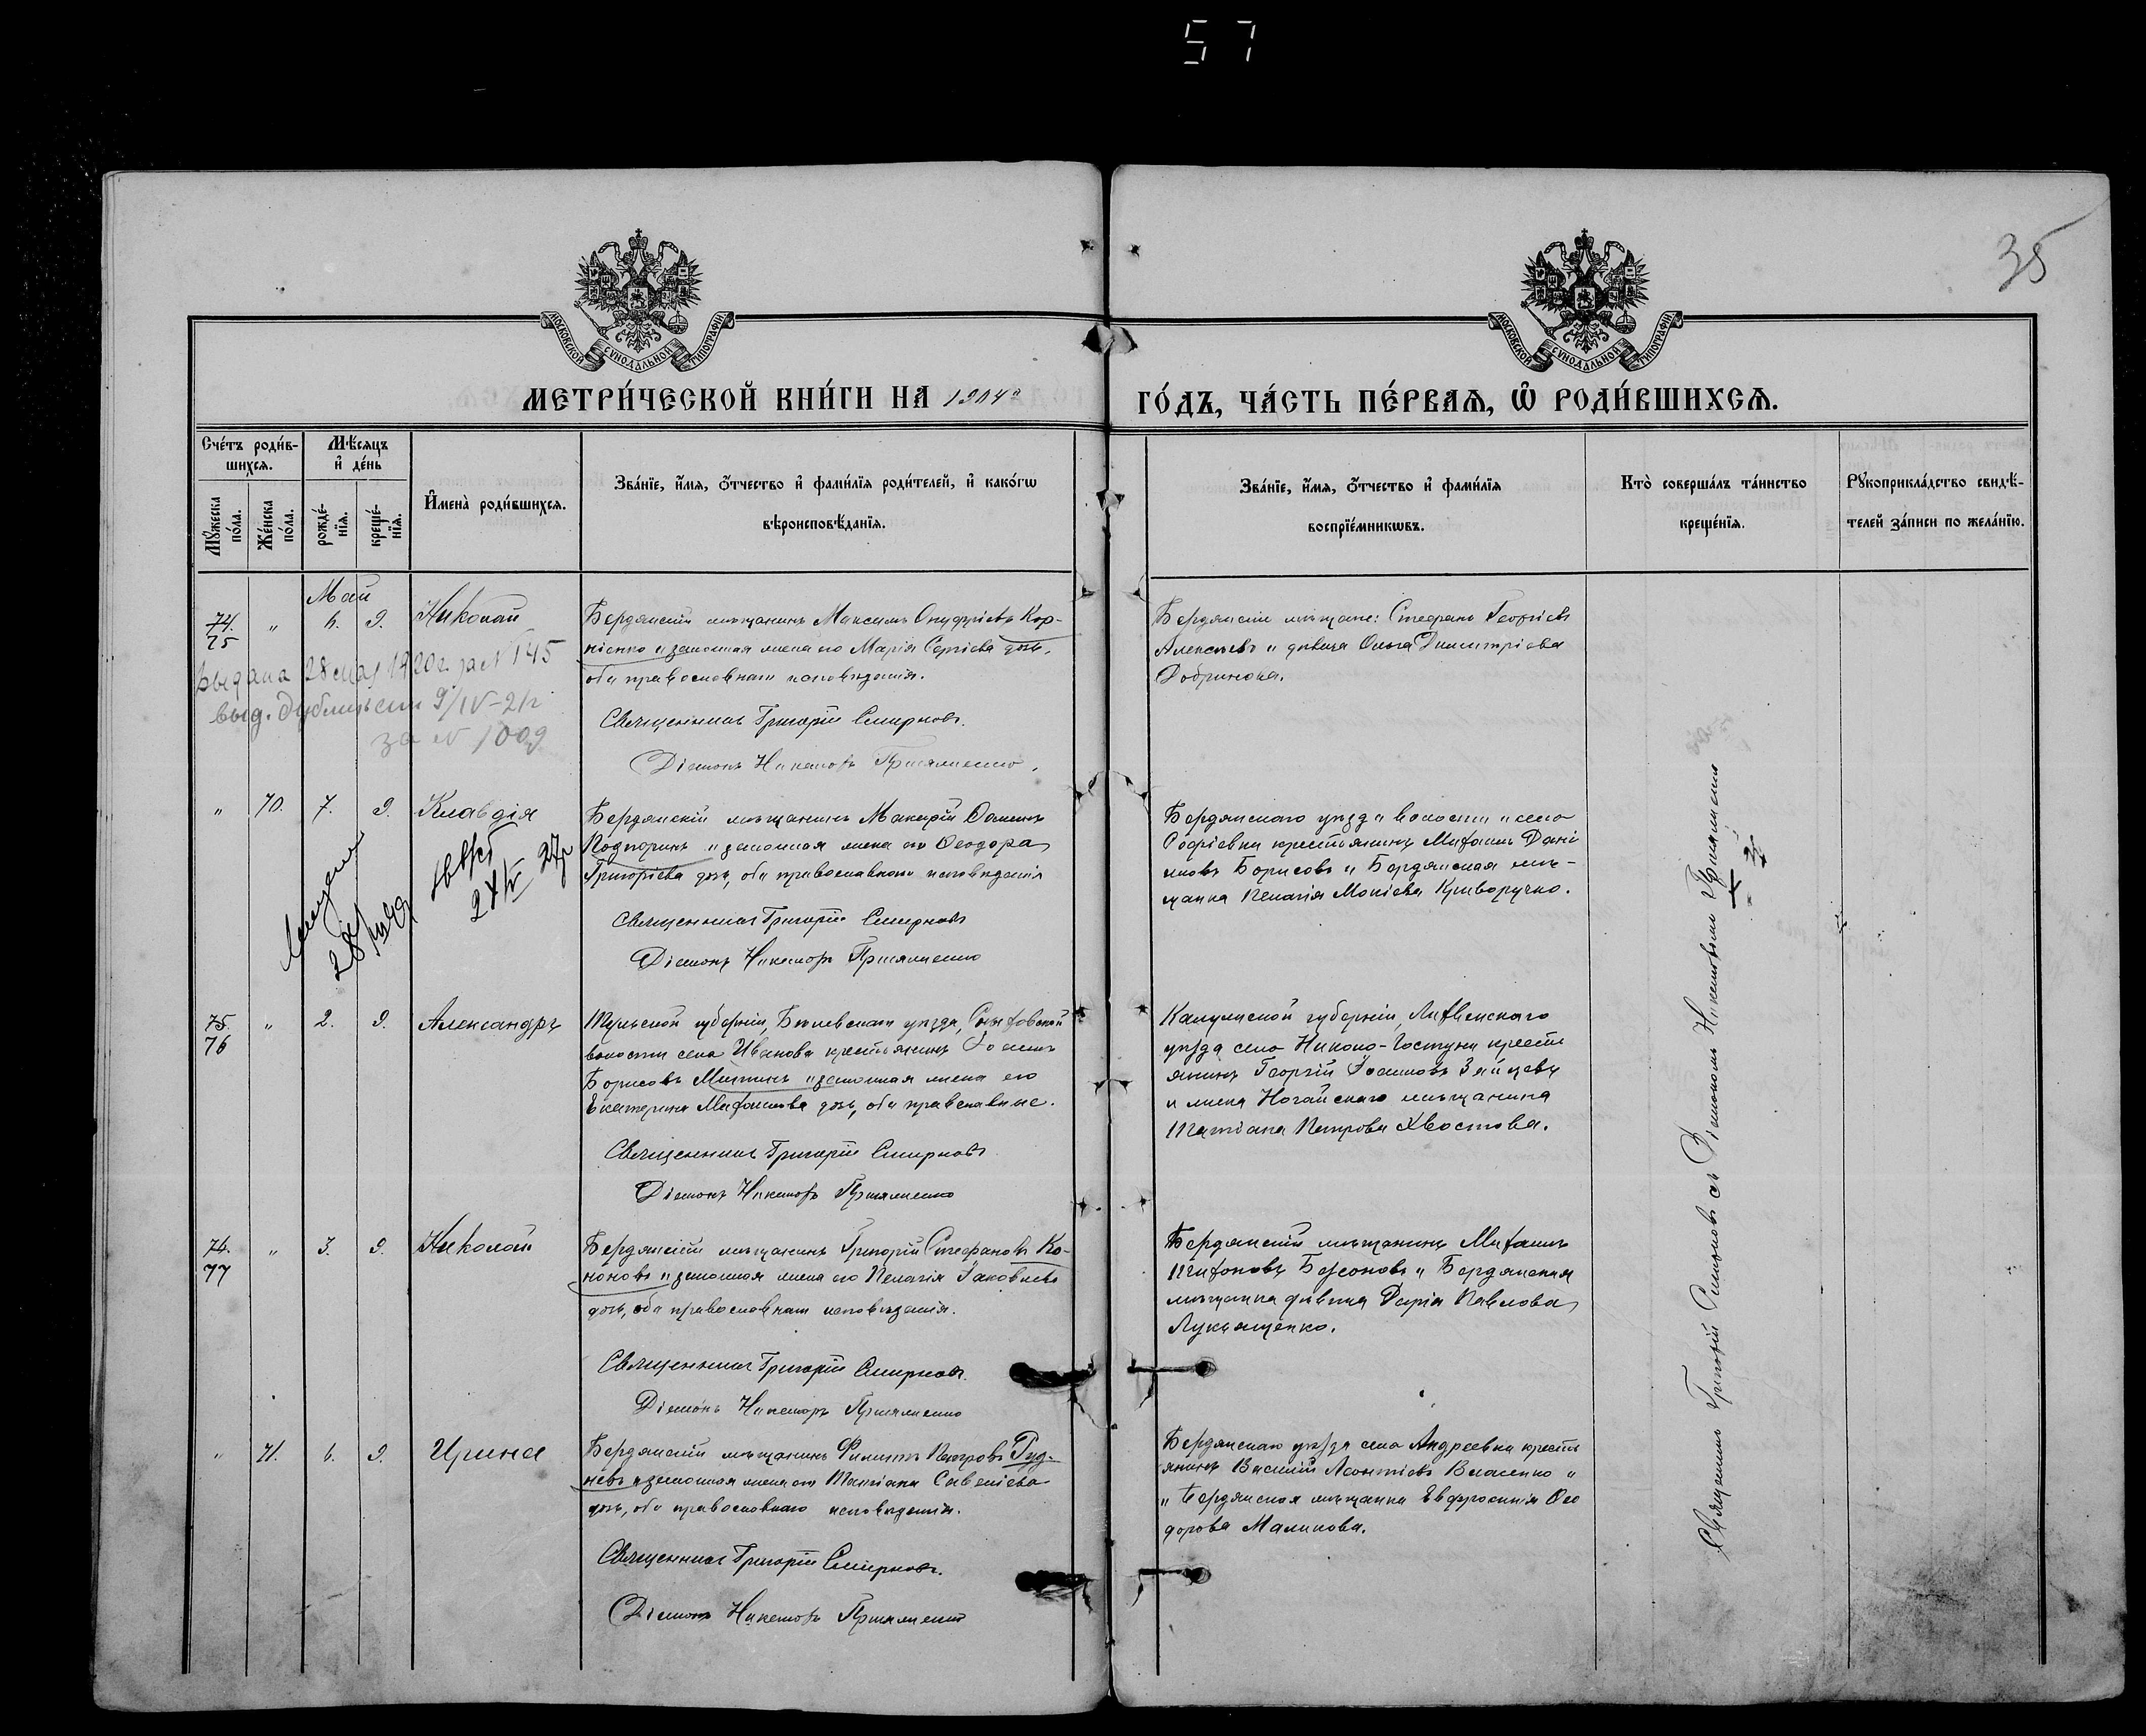 57
35
МОСКОВСКОЙ СѴНОДАЛЬНОЙ ТИПОГРАФІИ
МОСКОВСКОЙ СѴНОДАЛЬНОЙ ТИПОГРАФІИ
МЕТРИ́ЧЕСКОЙ КНИ́ГИ НА 1904 ГО́ДЪ, ЧА́СТЬ ПЕ́РВАѦ, Ѡ҆ РОДИ́ВШИХСѦ.
Сче́тъ роди́в-
шихсѧ.
Мѣ́сѧцъ
и҆ де́нь
Мꙋ́жеска
по́ла.
Же́нска
по́ла.
рожде́-
нїѧ.
креще́-
нїѧ.
И҆мена̀ роди́вшихсѧ.
Зва́нїе, и҆́мѧ, ѻ҆́тчество и҆ фами́лїѧ роди́телей, и҆ како́гѡ
вѣроисповѣ́данїѧ.
Зва́нїе, и҆́мѧ, ѻ҆́тчество и҆ фами́лїѧ
воспрїе́мникѡвъ.
Кто̀ соверша́лъ та́инство
креще́нїѧ.
Рꙋкоприкла́дство свидѣ́-
телей за́писи по жела́нїю.
Май
74. 75 " 9. Николай
Бердянскій мѣщанинъ Максимъ Онуфріевъ Кор-
ніенко и законная жена его Марія Сергіева дочь,
оба православнаго исповѣданія.
Священникъ Григорій Смирновъ.
Діаконъ Никаноръ
Бердянскіе мѣщане: Стефанъ Георгіевъ
Алексѣевъ и дѣвица Ольга Димитріева
Добринова.
Выдана 28 мая 1920 г. за № 145
выд. дубликатъ 9/IV-21 г
за № 1009
" 70. 7. 9. Клавдія
Бердянскій мѣщанинъ Макарій
и законная жена его Ѳеодора
Григоріева дочь, оба православнаго исповѣданія
Священникъ Григорій Смирновъ
Діаконъ Никаноръ
Бердянскаго уѣзда и волости и села
Софіевки крестьянинъ Михаилъ Дани-
ловъ Борисовъ и Бердянская мѣ-
щанка Пелагія Мокіева Криворучко.
75. 76 " 2. 9. Александръ
Тульской губерніи, Бѣлевскаго уѣзда,
волости села Иванова крестьянинъ
Борисовъ Митинъ и законная жена его
Екатерина Михаилова дочь, оба православные.
Священникъ Григорій Смирновъ
Діаконъ Никаноръ
Калужской губерніи, Лихвинскаго
уѣзда села Николо-Гастуни кресть-
янинъ Георгій Іоанновъ Зайцевъ
и жена Ногайскаго мѣщанина
Татіана Петрова Хвостова.
77 " 3. 9. Николай
Бердянскій мѣщанинъ Григорій Стефановъ Ко-
ноновъ и законная жена его Пелагія Іаковлева
дочь, оба православнаго исповѣданія.
Священникъ Григорій Смирновъ.
Діаконъ Никаноръ
Бердянскій мѣщанинъ Михаилъ
и Бердянская
мѣщанка дѣвица Дарія Павлова
Лукьященко.
" 71. 9. Ирина
Бердянскій мѣщанинъ Филиппъ Петровъ Руд-
невъ и законная жена его Татіана Савеліева
дочь, оба православнаго исповѣданія.
Священникъ Григорій Смирновъ.
Діаконъ Никаноръ
Бердянскаго уѣзда села Андреевки кресть-
янинъ Василій Леонтіевъ Власенко и
и Бердянская мѣщанка Евфросинія Ѳео
дорова Маликова.
Священникъ Григорій Смирновъ съ Діакономъ